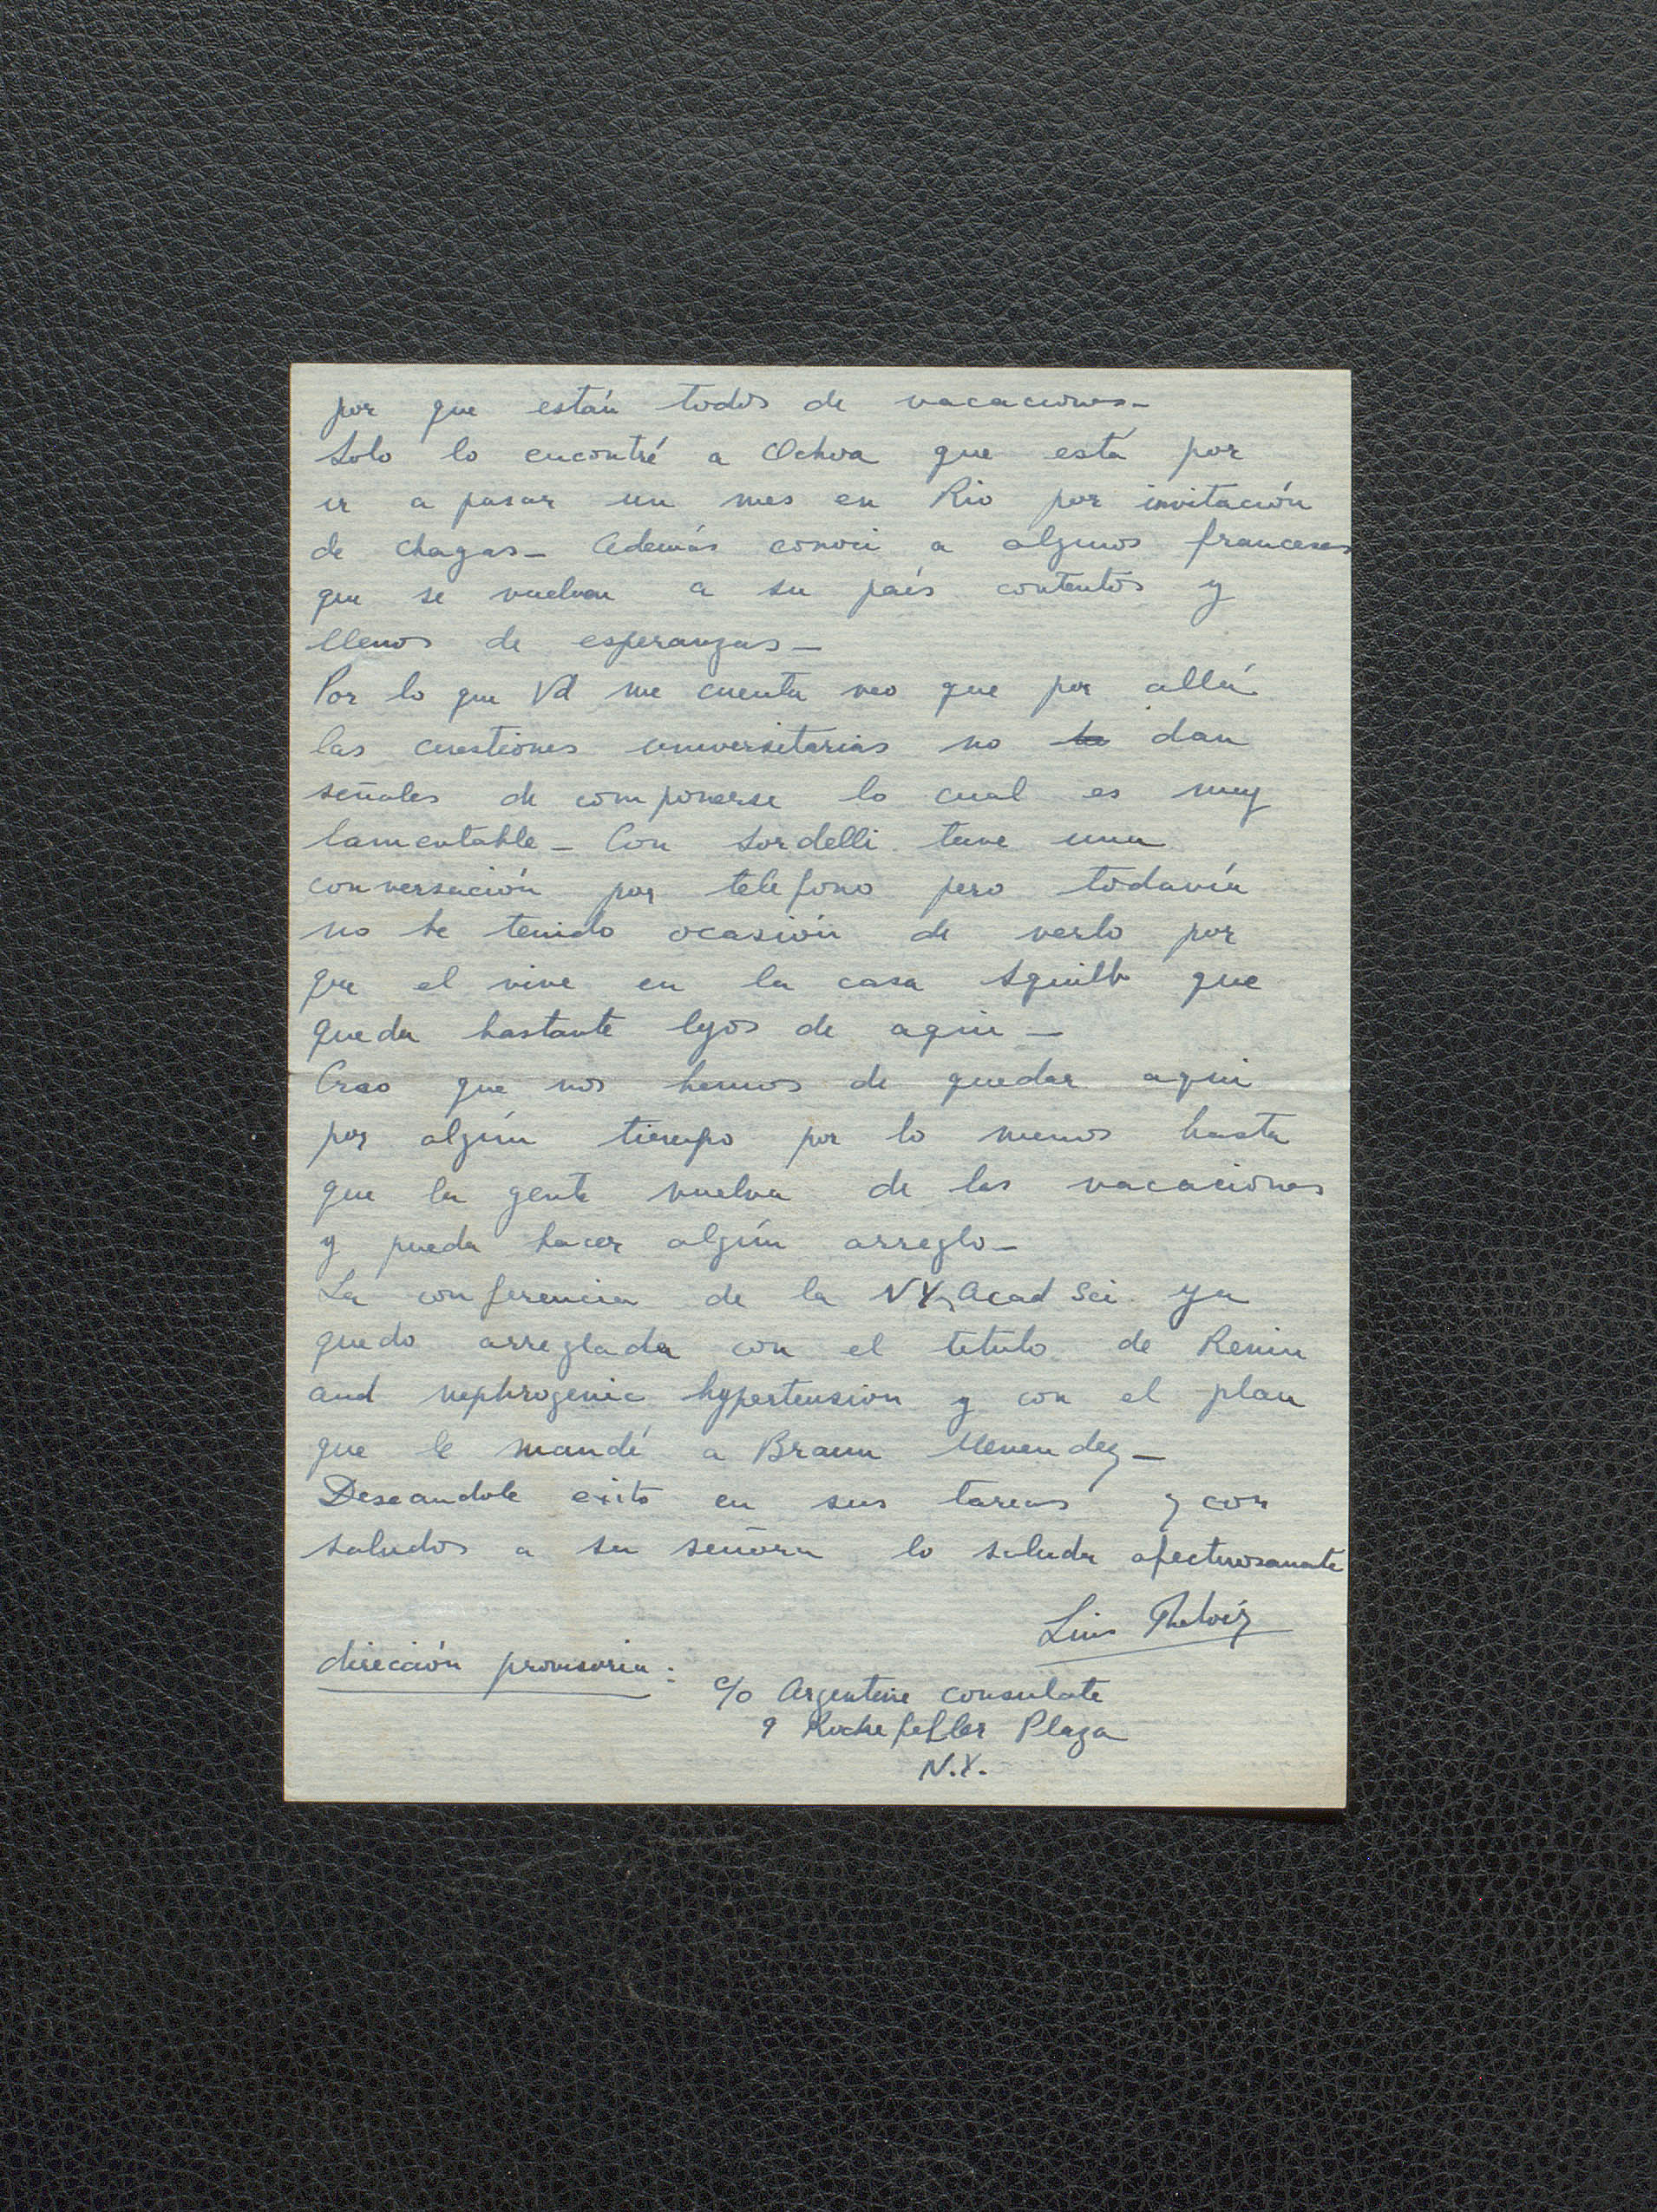 por que están todos de vacaciones_
Solo lo encontré a Ochoa que está por
ir a pasar un mes en Rio por invitación
de Chagas_ Además conocí a algunos franceses
que se vuelven a su país contentos y
llenos de esperanzas_
Por lo que Vd me cuenta veo que por allá
las cuestiones universitarias no dan
señales de componerse lo cual es muy
lamentable_ Con Sordelli tuve una
conversación por telefono pero todavía
no he tenido ocasión de verlo por
que el vive en la casa Squibb que
queda bastante lejos de aqui_
Creo que nos hemos de quedar aqui
por algún tiempo por lo menos hasta
que la gente vuelva de las vacaciones
y pueda hacer algún arreglo_
La conferencia de la NY Acad Sci ya
quedo arreglada con el titulo de Renin
and nephrogenic hypertension y con el plan
que le mandé a Braun Menendez_
Deseandole exito en sus tareas y con
saludos a su señora lo saluda afectuosamente
Luis
dirección provisoria:
c/o Argentine Consulate
9 Rockefeller Plaza
N.Y.